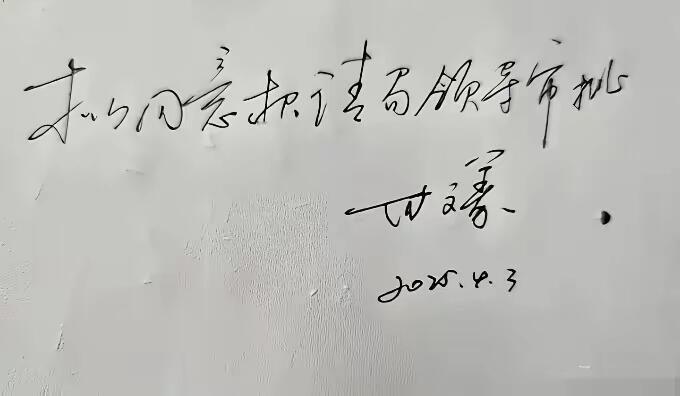 拟同意报请局领导审批
2025.4.3